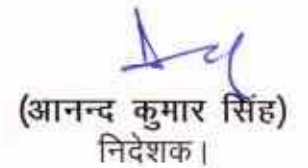 (आनन्द कुमार सिंह)
निदेशक।